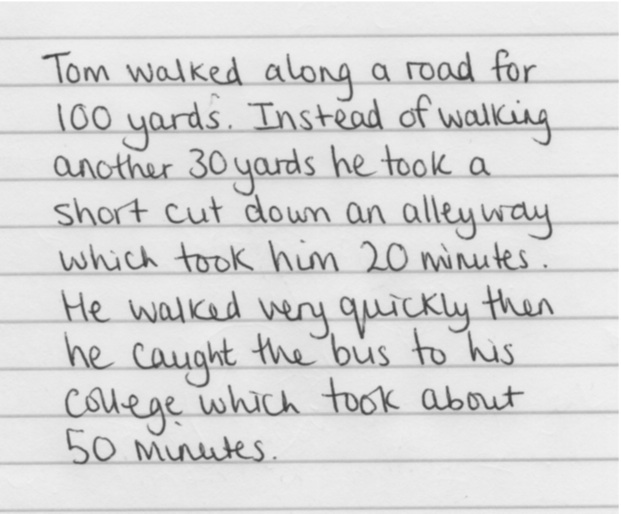 Tom walked along a road for
100 yards. Instead of walking
another 30 yards he took a
short cut down an alleyway
which took him 20 minutes.
He walked very quickly then
he caught the bus to his
college which took about
50 minutes.